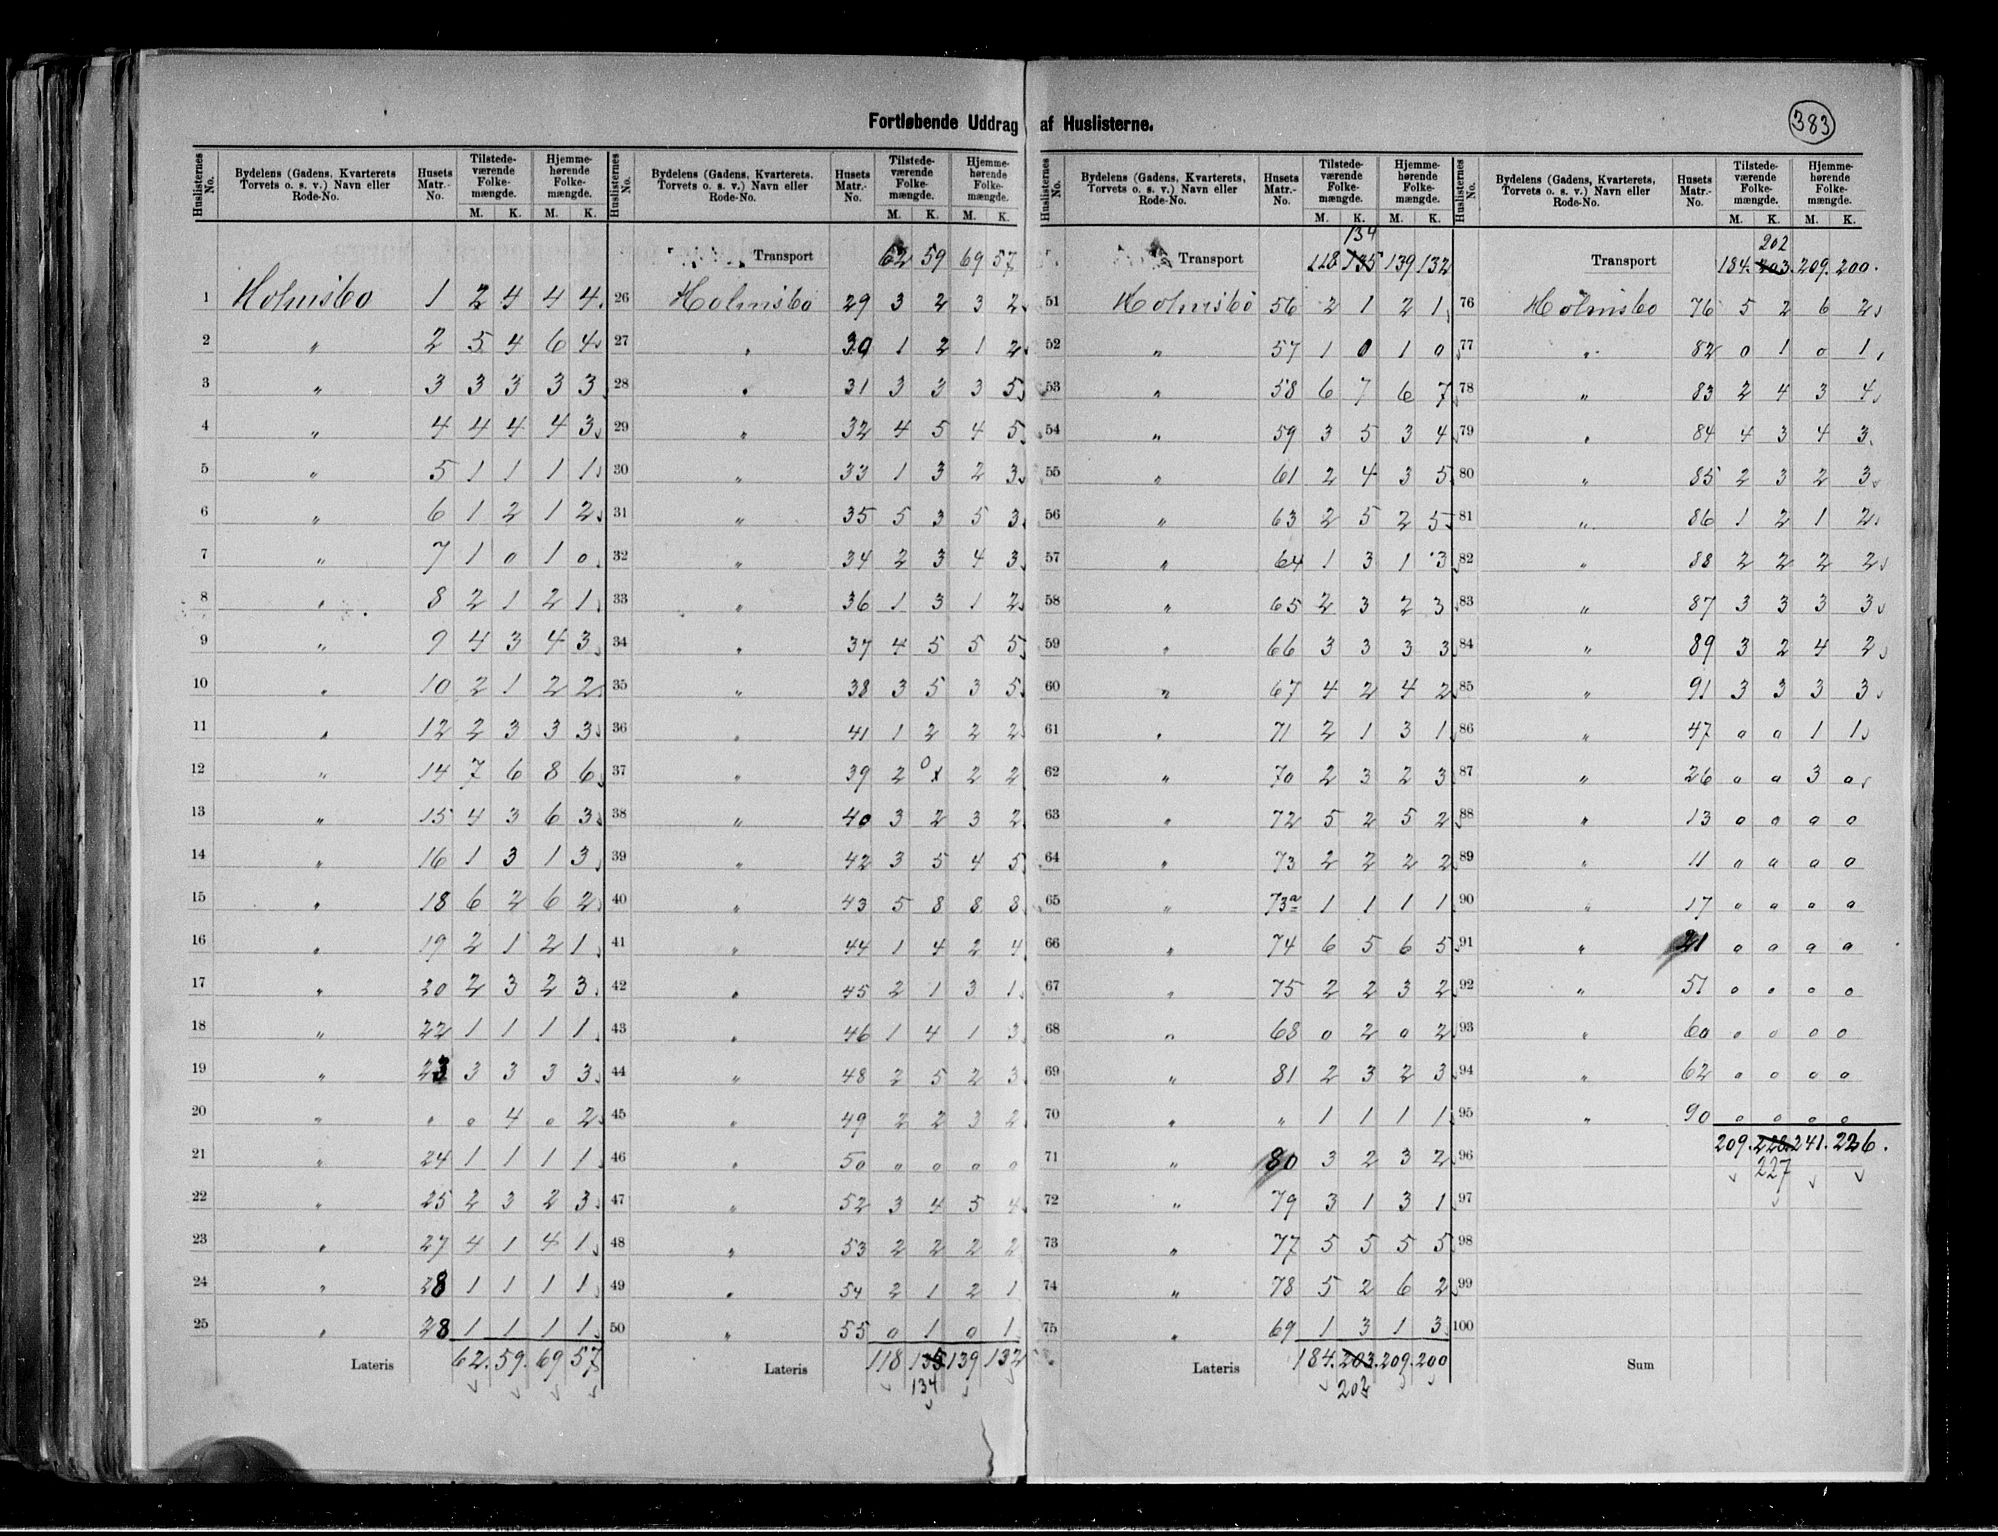 383
Fortløbende Uddrag af Huslisterne.
Huslisternes No. | Bydelens (Gadens, Kvarterets, Torvets o. s. v.) Navn eller Rode-No. | Husets Matr.-No. | Tilstedeværende Folkemængde. M. K. | Hjemmehørende Folkemængde. M. K.
1 Holmsbo 1 2 4 4 4
2 " 2 5 4 6 4
3 " 3 3 3 3 3
4 " 4 4 4 4 3
5 " 5 1 1 1 1
6 " 6 1 2 1 2
7 " 7 1 0 1 0
8 " 8 2 1 2 1
9 " 9 4 3 4 3
10 " 10 2 1 2 2
11 " 12 2 3 3 3
12 " 14 7 6 8 6
13 " 15 4 3 6 3
14 " 16 1 3 1 3
15 " 18 6 2 6 2
16 " 19 2 1 2 1
17 " 20 2 3 2 3
18 " 22 1 1 1 1
19 " 23 3 3 3 3
20 " " 0 4 0 2
21 " 24 1 1 1 1
22 " 25 2 3 2 3
23 " 27 4 1 4 1
24 " 28 1 1 1 1
25 " 28 1 1 1 1
Lateris 62. 59. 69 57
Huslisternes No. | Bydelens (Gadens, Kvarterets, Torvets o. s. v.) Navn eller Rode-No. | Husets Matr.-No. | Tilstedeværende Folkemængde. M. K. | Hjemmehørende Folkemængde. M. K.
Transport 62 59 69 57
26 Holmsbo 29 3 2 3 2
27 " 30 1 2 1 2
28 " 31 3 3 3 5
29 " 32 4 5 4 5
30 " 33 1 3 2 3
31 " 35 5 3 5 3
32 " 34 2 3 4 3
33 " 36 1 3 1 2
34 " 37 4 5 5 5
35 " 38 3 5 3 5
36 " 41 1 2 2 2
37 " 39 2 0 1 2 2
38 " 40 3 2 3 2
39 " 42 3 5 4 5
40 " 43 5 8 8 8
41 " 44 1 4 2 4
42 " 45 2 1 3 1
43 " 46 1 4 1 3
44 " 48 2 5 2 3
45 " 49 2 2 3 2
46 " 50 0 0 0 0
47 " 52 3 4 5 4
48 " 53 2 2 2 2
49 " 54 2 1 2 1
50 " 55 0 1 0 1
Lateris 118 135 139 132
134
Huslisternes No. | Bydelens (Gadens, Kvarterets, Torvets o. s. v.) Navn eller Rode-No. | Husets Matr.-No. | Tilstedeværende Folkemængde. M. K. | Hjemmehørende Folkemængde. M. K.
134
Transport 118 135 139 132
51 Holmsbo 56 2 1 2 1
52 " 57 1 0 1 0
53 " 58 6 7 6 7
54 " 59 3 5 3 4
55 " 61 2 4 3 5
56 " 63 2 5 2 5
57 " 64 1 3 1 3
58 " 65 2 3 2 3
59 " 66 3 3 3 3
60 " 67 4 2 4 2
61 " 71 2 1 3 1
62 " 70 2 3 2 3
63 " 72 5 2 5 2
64 " 73 2 2 2 2
65 " 73a 1 1 1 1
66 " 74 6 5 6 5
67 " 75 2 2 3 2
68 " 68 0 2 0 2
69 " 81 2 3 2 3
70 " " 1 1 1 1
71 " 80 3 2 3 2
72 " 79 3 1 3 1
73 " 77 5 5 5 5
74 " 78 5 2 6 2
75 " 69 1 3 1 3
Lateris 184. 203. 209. 200
202
Huslisternes No. | Bydelens (Gadens, Kvarterets, Torvets o. s. v.) Navn eller Rode-No. | Husets Matr.-No. | Tilstedeværende Folkemængde. M. K. | Hjemmehørende Folkemængde. M. K.
202
Transport 184. 203. 209. 200.
76 Holmsbo 76 5 2 6 2
77 " 82 0 1 0 1
78 " 83 2 4 3 4
79 " 84 4 3 4 3
80 " 85 2 3 2 3
81 " 86 1 2 1 2
82 " 88 2 2 2 2
83 " 87 3 3 3 3
84 " 89 3 2 4 2
85 " 91 3 3 3 3
86 " 47 0 0 1 1
87 " 26 0 0 3 0
88 " 13 0 0 0 0
89 " 11 0 0 0 0
90 " 17 0 0 0 0
91 " 21 0 0 0 0
92 " 51 0 0 0 0
93 " 60 0 0 0 0
94 " 62 0 0 0 0
95 " 90 0 0 0 0
96 209. 228. 241. 226.
227
97
98
99
100
Sum